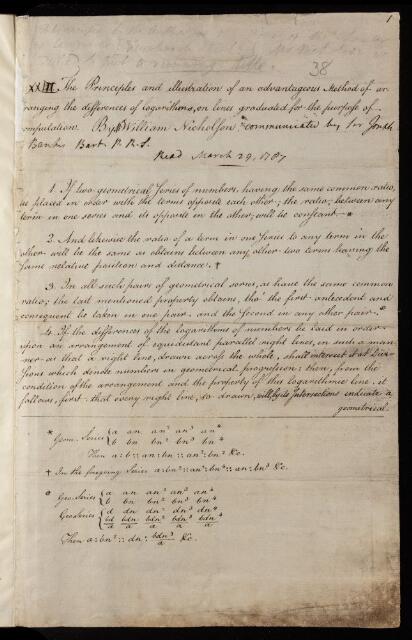 1
38
XXIII. The Principles and illustration of an advantageous Method of ar
ranging the differences of logarithms, on lines graduated for the purpose of
computation. By Mr William Nicholson communicated by Sir Joseph
Banks Bart. P.R.S.
Read March 29, 1787
1. If two geometrical Series of numbers, having the same common ratio,
be placed in order with the terms opposite each other; the ratio, between any
term in one series and its opposite in the other, will be constant. *
2. And likewise the ratio of a term in one Series to any term in the
other will be the same as obtains between any other two terms having the
same relative position and distance. †
3. In all such pairs of geometrical series, as have the same common
ratio; the last mentioned property obtains, tho' the first antecedent and
consequent be taken in one pair, and the Second in any other pair.
4. If the differences of the logarithms of numbers be laid in order
upon an arrangement of equidistant parallel right lines, in such a man
ner as that a right line, drawn across the whole, shall intersect it at Divi-
sions which denote numbers in geometrical progression: then, from the
condition of the arrangement and the property of this logarithmic line, it
follows, first that every right line, so drawn, will by its Intersections indicate a
geometrical
* Geom. Series { a an an² an³ an⁴
b bn bn² bn³ bn⁴
Then a:b::an:bn::an²:bn² &c.
† In the foregoing Series a:bn²::an²:bn⁴::an:bn³ &c.
Geo. Series { a an an² an³ an⁴
b bn bn² bn³ bn⁴
Geo Series { d dn dn² dn³ dn⁴
bd/a bdn/a bdn²/a bdn³/a bdn⁴/a
Then a:bn²::dn:bdn³/a &c.